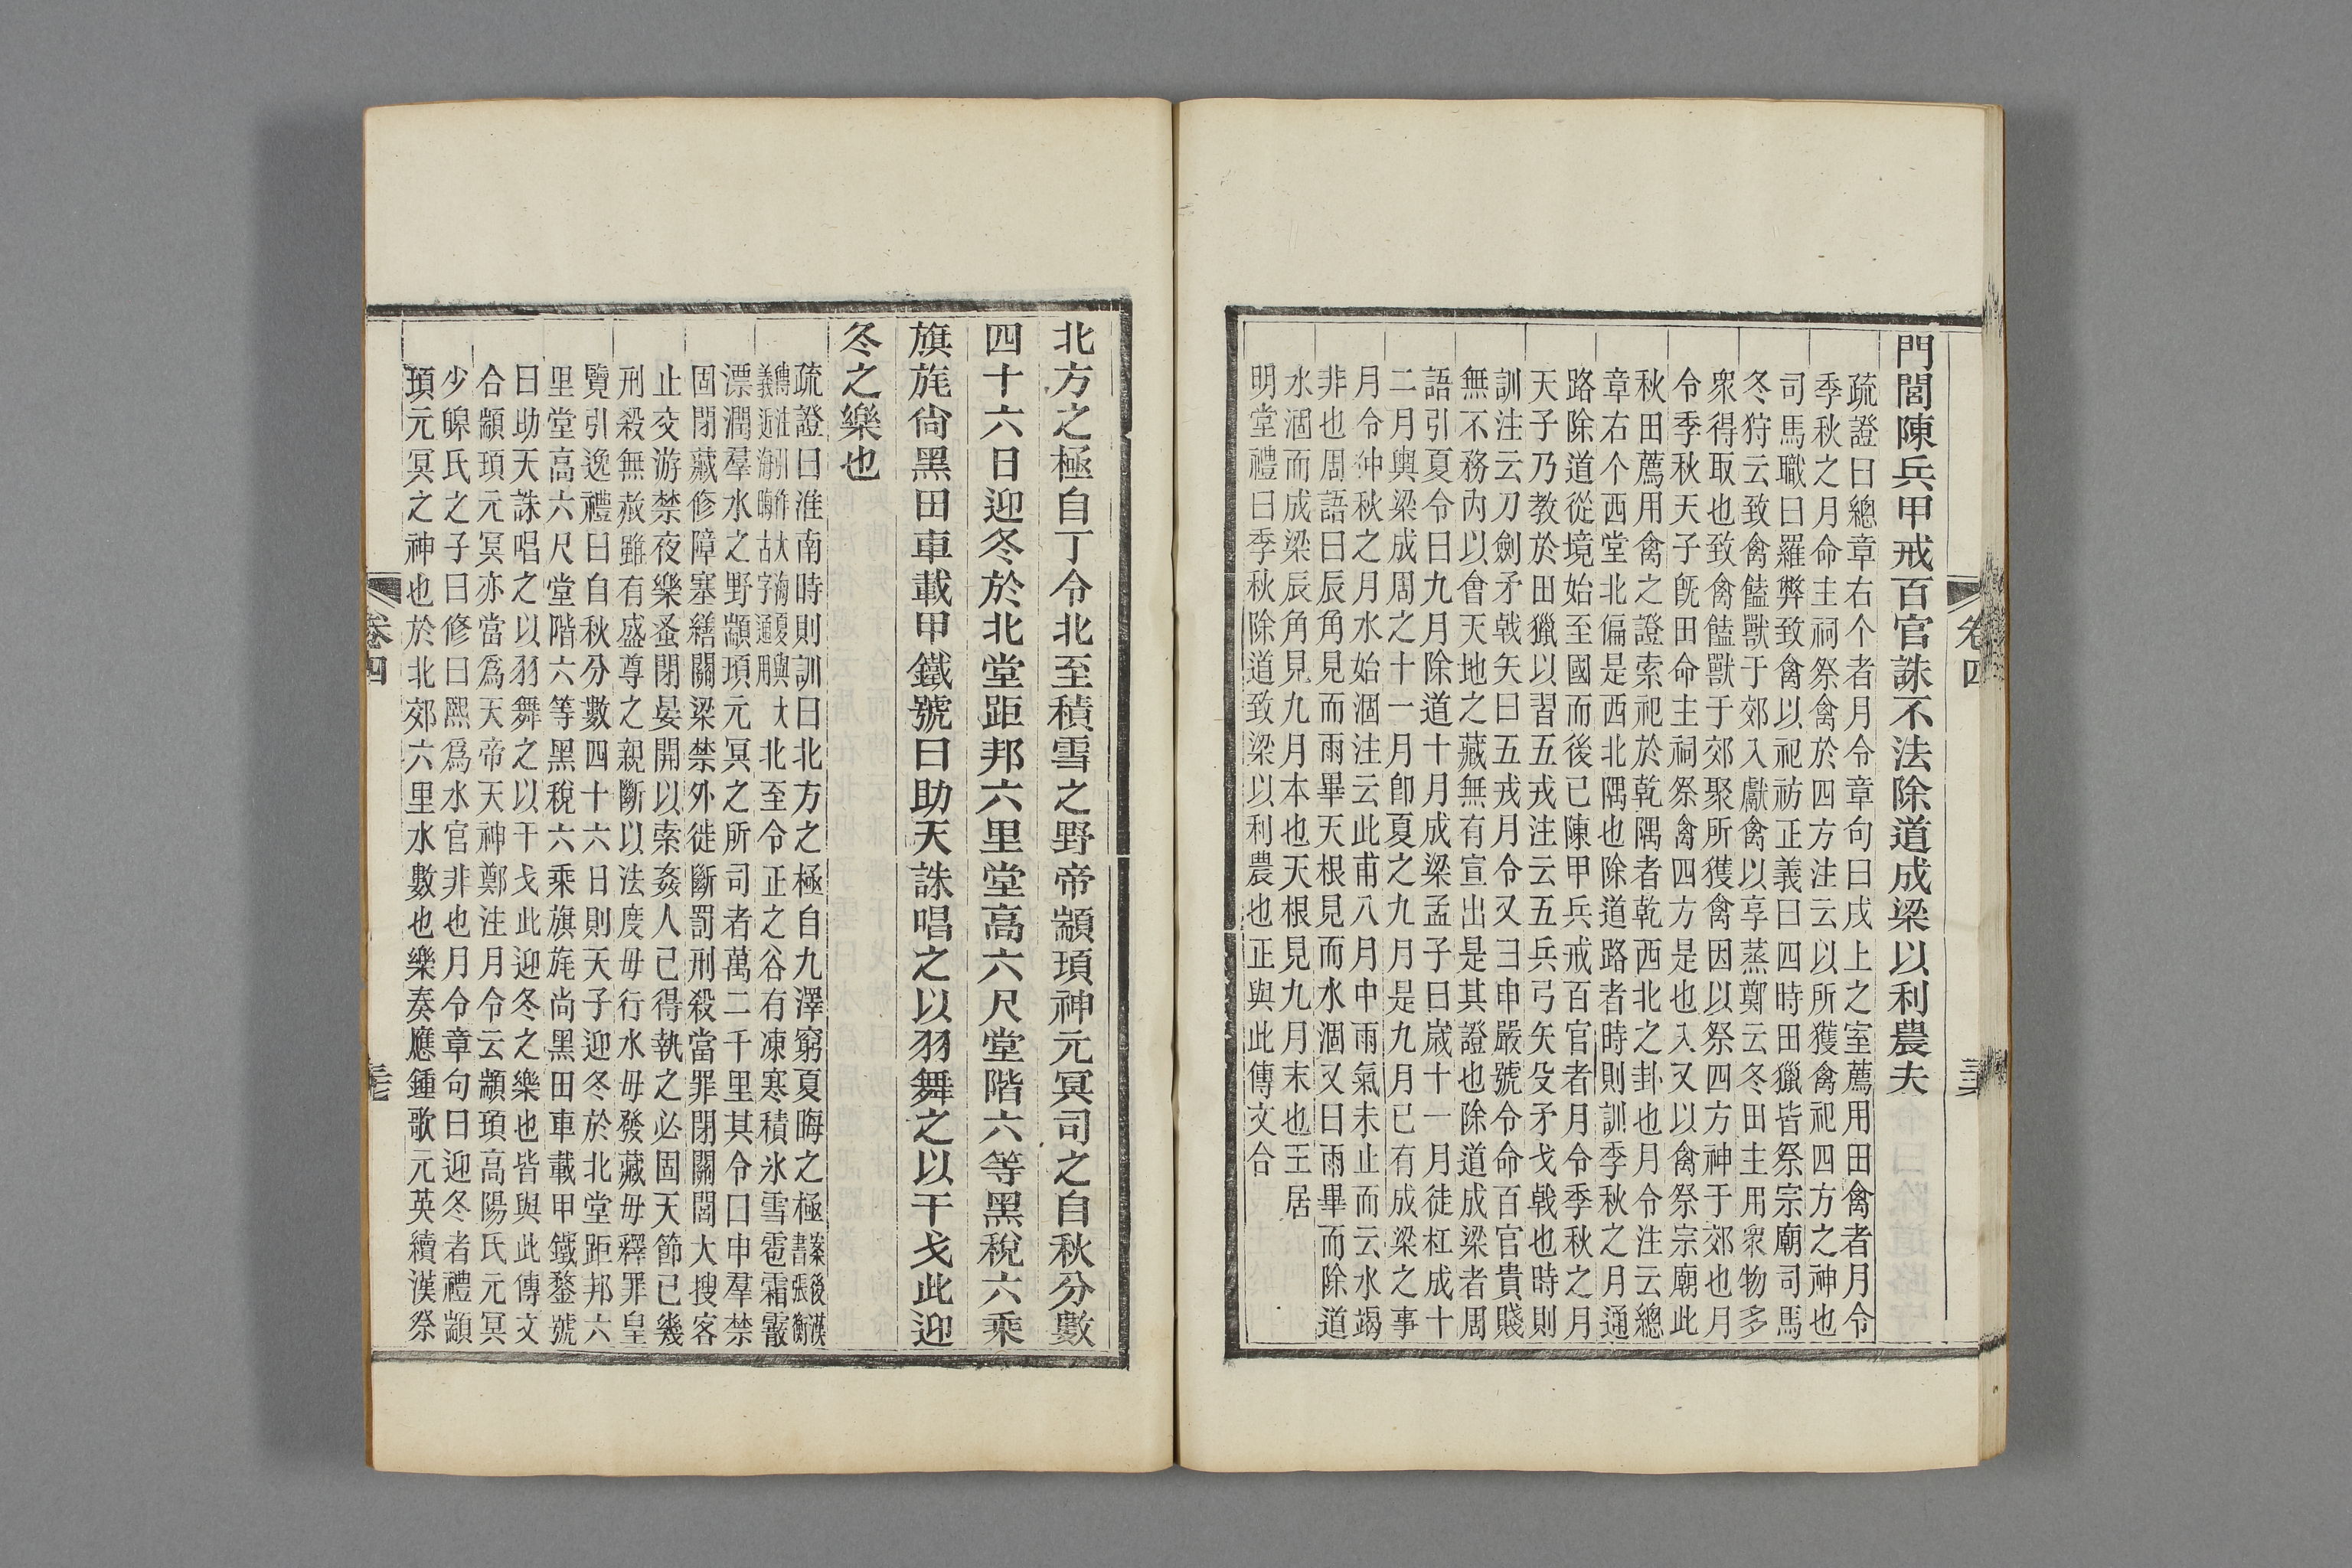 卷四
門閭陳兵甲戒百官誅不法除道成梁以利農夫
疏證曰總章右个者月令章句曰戌上之室薦用田禽者月令
季秋之月命主祠祭禽於四方注云以所獲禽祀四方之神也
司馬職曰羅弊致禽以祀祊正義曰四時田獵皆祭宗廟司馬
冬狩云致禽饁獸于郊入獻禽以享蒸鄭云冬田主用衆物多
衆得取也致禽饁獸于郊聚所獲禽因以祭四方神于郊也月
令季秋天子既田命主祠祭禽四方是也入又以禽祭宗廟此
秋田薦用禽之證索祀於乾隅者乾西北之卦也月令注云總
章右个西堂北偏是西北隅也除道路者時則訓季秋之月通
路除道從境始至國而後已陳甲兵戒百官者月令季秋之月
天子乃教於田獵以習五戎注云五兵弓矢殳矛戈戟也時則
訓注云刀劍矛戟矢曰五戎月令又曰申嚴號令命百官貴賤
無不務內以會天地之藏無有宣出是其證也除道成梁者周
語引夏令曰九月除道十月成梁孟子曰嵗十一月徒杠成十
二月輿梁成周之十一月卽夏之九月是九月已有成梁之事
月令仲秋之月水始涸注云此甫八月中雨氣未止而云水竭
非也周語曰辰角見而雨畢天根見而水涸又曰雨畢而除道
水涸而成梁辰角見九月本也天根見九月末也王居
明堂禮曰季秋除道致梁以利農也正與此傳文合
北方之極自丁令北至積雪之野帝顓頊神元冥司之自秋分數
四十六日迎冬於北堂距邦六里堂高六尺堂階六等黑稅六乘
旗旄尙黑田車載甲鐵鍪號曰助天誅唱之以羽舞之以干戈此迎
冬之樂也
疏證曰淮南時則訓曰北方之極自九澤窮夏晦之極案後漢書張衡
傳注引作大海夏與大義近海晦古字通用北至令正之谷有凍寒積氷雪雹霜霰
漂潤羣水之野顓頊元冥之所司者萬二千里其令曰申羣禁
固閉藏修障塞繕關梁禁外徙斷罰刑殺當罪閉關閭大搜客
止交游禁夜樂蚤閉晏開以索姦人已得執之必固天節已幾
刑殺無赦雖有盛尊之親斷以法度毋行水毋發藏毋釋罪皇
覽引逸禮曰自秋分數四十六日則天子迎冬於北堂距邦六
里堂高六尺堂階六等黑稅六乘旗旄尚黑田車載甲鐵鍪號
曰助天誅唱之以羽舞之以干戈此迎冬之樂也皆與此傳文
合顓頊元冥亦當爲天帝天神鄭注月令云顓頊高陽氏元冥
少皞氏之子曰修曰熙爲水官非也月令章句曰迎冬者禮顓
頊元冥之神也於北郊六里水數也樂奏應鍾歌元英續漢祭
卷四